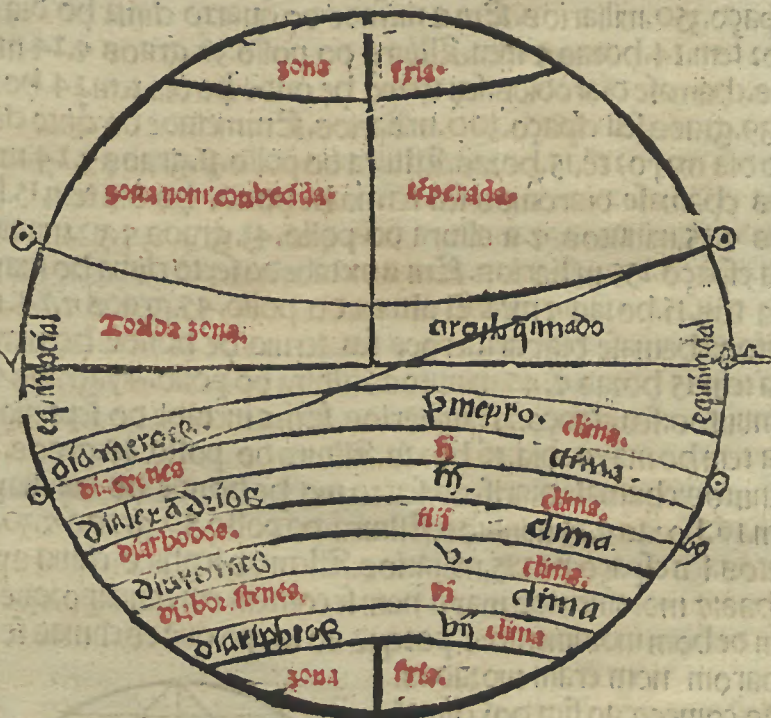 zona fria.
zona nom conhecida. tẽperada.
Toalda zona. circulo q̃imado
equinocial
equinocial
diameroes. pmepro. clima.
diesenes ii clima.
dialexãdrios iij. clima.
diarhodos. iiij clima
diaromes v. clima.
diabor stenes. vi clima
diaripheos vij clima
zona fria.